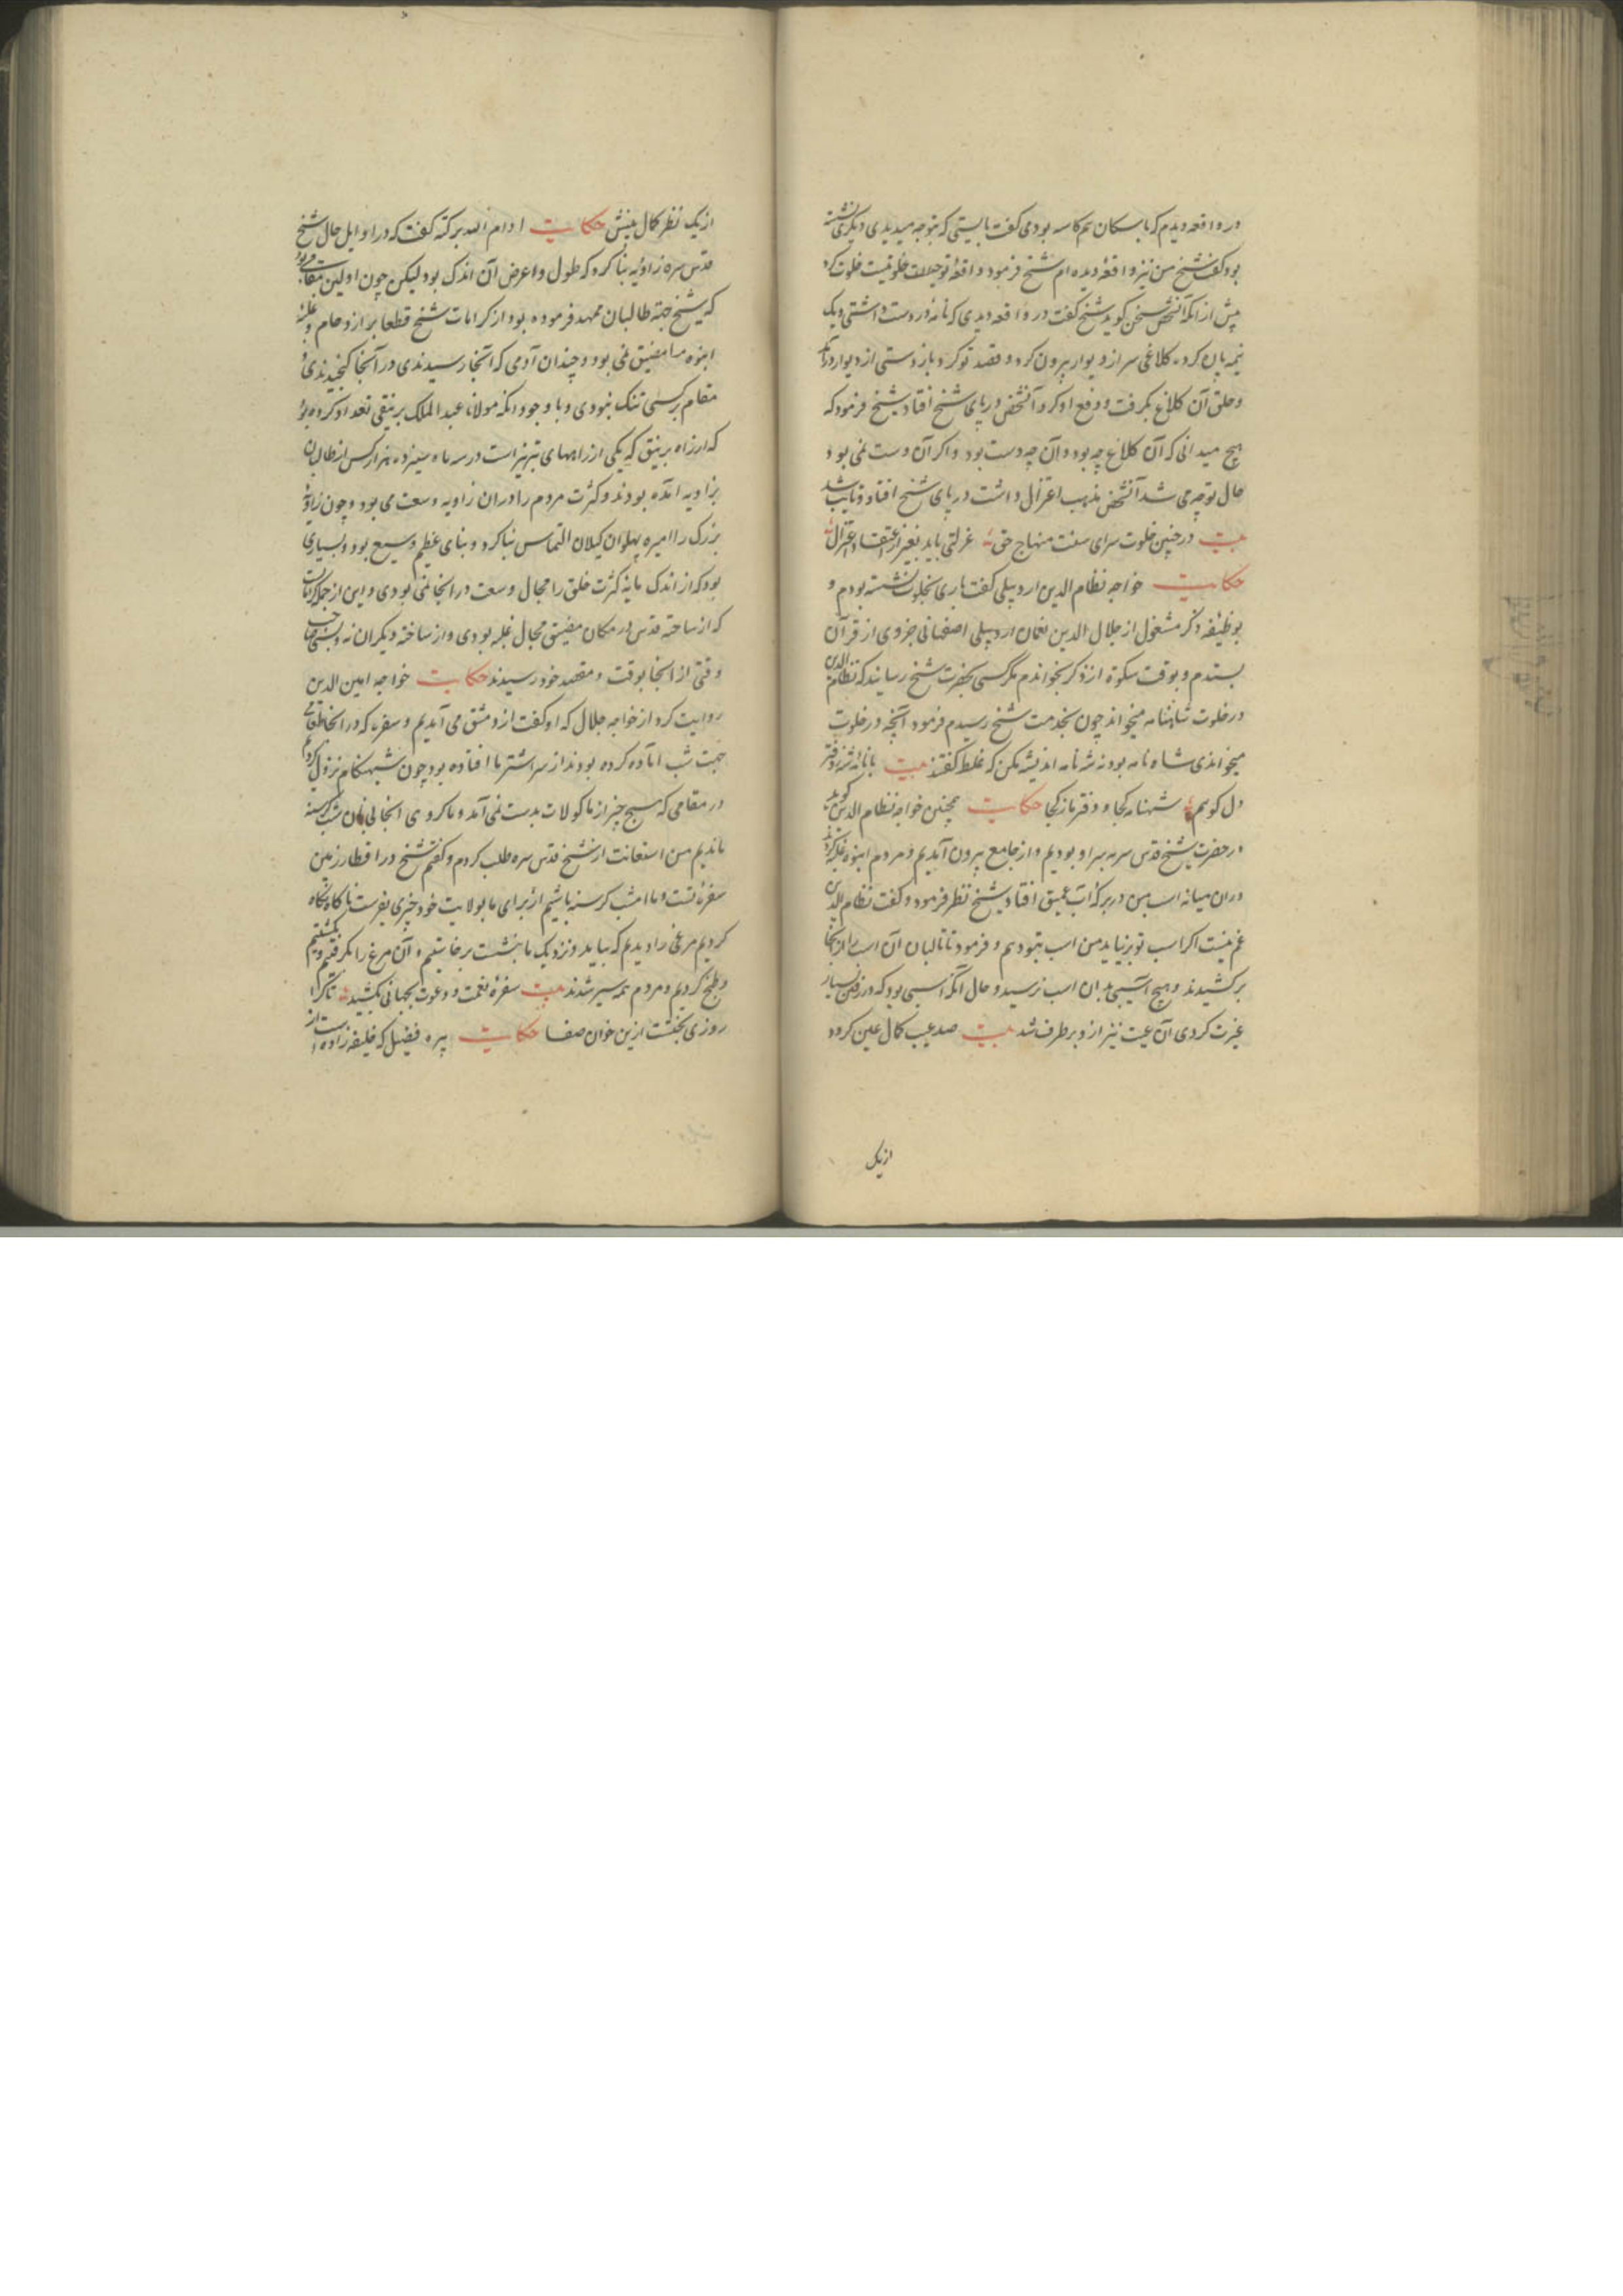 در واقعه دیدم که با سکان هم کاسه بودمی گفت بایستی که بتوجه میدیدی دیگری نشسته
بود گفت شیخ من نیز واقعهٔ دیده ام شیخ فرمود واقعهٔ تو خیالات خلوتیست خلوت کرد
پیش از انکه آنشخص سخن گوید شیخ گفت در واقعه دیدی که نانهٔ در دست داشتی و یک
نیمه پان کرده کلاغی سر از دیوار بیرون کرد و قصد تو کرد باز دستی از دیوار درآمد
و حلق آن کلاغ بگرفت و دفع او کرد آنشخص در پای شیخ افتاد شیخ فرمود که
هیچ میدانی که آن کلاغ چه بود و آن چه دست بود و اگر آن دست نمی بود
حال تو چه می شد آنشخص مذهب اعتزال داشت در پای شیخ افتاد و تایب شد
بیت در چنین خلوت سرای سنت منهاج حق عزلتی باید بغیر از اعتقاد اعتزال
حکایت خواجه نظام الدین اردبیلی گفت باری بخلوت نشسته بودم و
بوظیفه ذکر مشغول از جلال الدین نعمان اردبیلی اصفهانی جزوی از قرآن
بستدم و بوقت سکوة از ذکر بخواندم مگر کسی بحضرت شیخ رسانید که نظام الدین
در خلوت شاهنامه میخواند چون بخدمت شیخ رسیدم فرمود آنچه در خلوت
میخواندی شاه نامه بود نه شه نامه اندیشه مکن که غلط گفتند بیت با نامهٔ شه ز دفتر
دل گویم شهنامه کجا و دفتر باز کجا حکایت همچنین خواجه نظام الدین گوید
در حضرت شیخ قدس سره بسراو بودیم و از جامع بیرون آمدیم و مردم انبوه غلبه کردند
در ان میانه اسب من در برکهٔ آب عمیق افتاد شیخ نظر فرمود و گفت نظام الدین
غم نیست اگر اسب تو برنیاید من اسب بتو دهم و فرمود تا طالبان آن اسب را از آنجا
برکشیدند و هیچ آسیبی بدان اسب نرسید و حال آنکه اسبی بود که در رفتن بسیار
عیزت کردی آن عیب نیز از و برطرف شد بیت صد عیب کمال عین کرد و
از یک
از یک نظر کمال بینش حکایت ادام الله برکته گفت که در اوایل حال شیخ
قدس سره زاویه بنا کرد که طول و اعرض آن اندک بود لیکن چون اولین مقامی بود
که شیخ جهة طالبان ممهد فرموده بود از کرامات شیخ قطعا بر ازدحام و غلبهٔ
انبوه ما مضیق نمی بود و چندان آدمی که آنجا رسیدندی در آنجا گنجیدندی و
مقام بر کسی تنگ نبودی و با وجود انکه مولانا عبد الملک برنیقی تعداد کرده بود
که از راه برنیق که یکی از راههای تبریز است در سه ماه سیزده هزار کس از طالبان
بزاویه آمده بودند و کثرت مردم را در ان زاویه وسعت می بود و چون زاویهٔ
بزرگ را امیره پهلوان گیلان التماس بنا کرد و بنای عظیم وسیع بود و بسیاری
بود که از اندک مایه کثرت خلق را مجال وسعت در انجا نمی بودی و این از جمله کرامات
که از ساخته قدس در مکان مضیق مجال غلبه بودی و از ساخته دیگران نه
وقتی از انجا بوقت و مقصد خود رسیدند حکایت خواجه امین الدین
روایت کرد از خواجه جلال که او گفت از دمشق می آمدیم و سفره که در انجا طعامی
جهت شب آماده کرده بودند از سر اشتر ما افتاده بود چون شبهنگام نزول کردیم
در مقامی که هیچ چیز از ماکولات بدست نمی آمد و ما کروی انجا بی نان شب گرسنه
ماندیم من استعانت از شیخ قدس سره طلب کردم و گفتم شیخ در اقطار زمین
سفرهٔ تست و ما امشب گرسنه باشیم از برای ما بولایت خود چیزی بفرست ناگاه نگاه
کردیم مرغی را دیدیم که بیاید و نزدیک ما بنشست برخاستیم و آن مرغ را بگرفتیم و بکشتیم
و طبخ کردیم و مردم همه سیر شدند بیت سفرهٔ نعمت و دعوت بجهانی بکشید تا کرا
روزی بخشت ازین خوان صفا حکایت پیره فضیل که خلیفه زاده است از